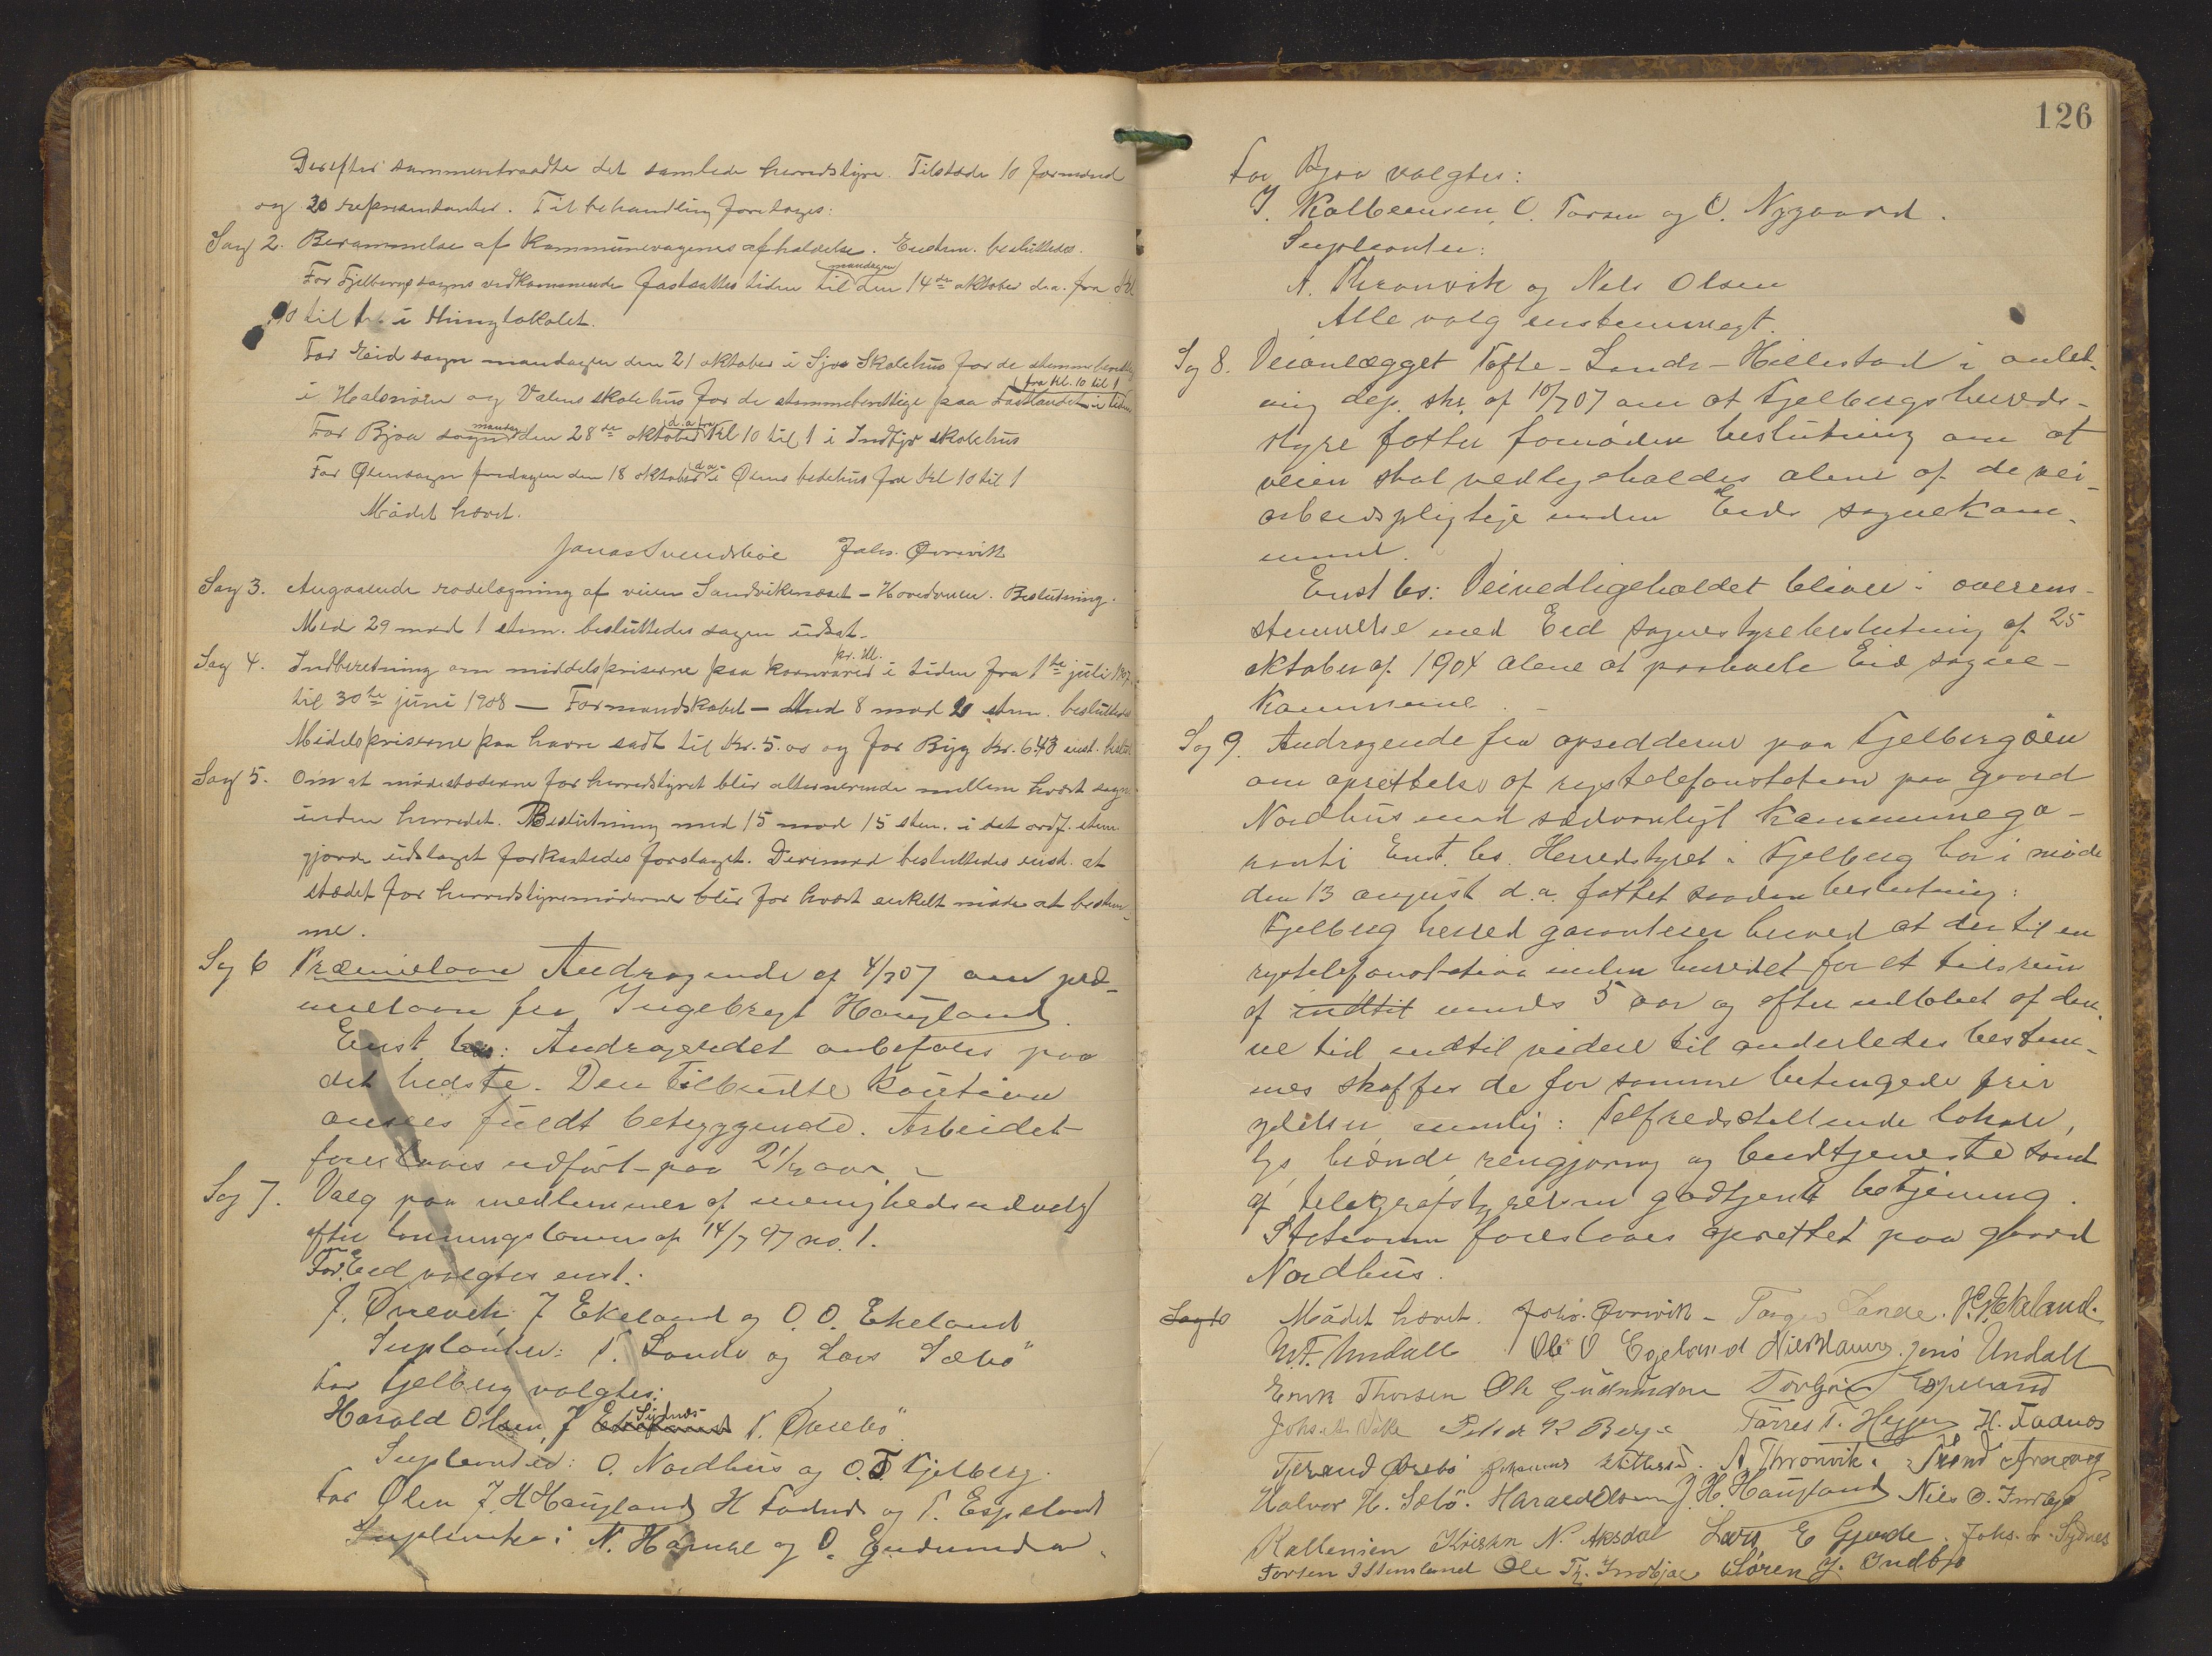 Derefter sammentraadte det samlede herredstyre. Tilstede 10 formænd
og 20 repræsentanter. Til behandling foretoges:
Sag 2. Berammelse af kommunevagenes afholdelse. Enstem. besluttedes.
For Fjelbergsogns vedkommende fastsattes tiden til mandagen den 14de oktober d.a. fra Kl
10 til 1 i thinglokalet.
For Eid sogn mandagen den 21 oktober i Sjoa Skolehus for de stemmeberettige
i Halsnöen og Valens skolehus for de stemmeberettige paa Fastlandet fra kl. 10 til 1
For Bjoa sogn mandag den 28de oktober d.a. fra Kl 10 til 1 i Indbjo skolehus
For Ølensogn fredagen den 18 oktober d.a. i Ølens bedehus fra kl 10 til 1
Mödet hævet.
Jonas Svendsböe Johs. Ørrevik
Sag 3. Angaaende rodelægning af veien Sandvikenæset - Hovedveien. Beslutning.
Med 29 mod 1 stem. besluttedes sagen udsat.
Sag 4. Indberetning om middelspriserne paa kornvarer pr. Hl. i tiden fra 1ste juli 1907
til 30te juni 1908 — Formandskabet — Med 8 mod 2 stem. besluttedes
Midelspriserne paa havre sadt til Kr. 5.00 og for Byg Kr. 6.43 enst.
Sag 5. Om at mödestederne for herredstyret blir alternerende mellem hvert sogn
inden herredet. Beslutning med 15 mod 15 stem. i det ordf. stem.
gjorde udslaget forkastedes forslaget. Derimod besluttedes enst. at
stedet for herredstyremöderne blir for hvert enkelt möde at bestem-
me.
Sag 6 Præmielaan Andragende af 4/7 07 om præ-
mielaan fra Ingebregt Haugland.
Enst. bes: Andragendet anbefales paa
det bedste. Den tilbudte kaution
ansees fuldt betryggende. Arbeidet
foreslaaes udført paa 2½ aar.
Sag 7. Valg paa medlemmer af menighedsudvalg
efter lönningsloven af 14/7 97 no. 1.
For Eid valgtes enst.:
J. Ørrevik J Ekeland og O. O. Ekeland
Suplanter: T. Lande og Lars Sæbö
For Fjelberg valgtes:
Harald Olsen, J Sydnes T. Øvrebö
Suplanter: O. Nordhus og O. T. Fjelberg.
For Ølen J. H Haugland H Fadnes og T. Espeland
Suplanter: N. Hamre og O. Gudmundsen.
126
For Bjoa valgtes:
I. Kallevensen, O. Torsen og O. Nygaard.
Suplanter:
A. Thronvik og Nels Olsen
Alle valg enstemmegt.
Sag 8. Veianlægget Tofte - Lande - Hillestad i anled-
ning dep. skr. af 10/7 07 om at Fjelbergs herreds-
styre fatter fornöden beslutning om at
veien skal vedligeholdes alene af de vei-
arbeidspligtige inden Eids sognekom-
mune.
Enst bes: Veivedligeholdet bliver i overens-
stemmelse med Eid sognestyrebeslutning af 25
oktober 1904 alene at paahvile Eid sogne-
kommune.
Sag 9. Andragende fra opsidderne paa Fjelbergöen
om oprettelse af rigstelefonstation paa gaard
Nordhus mod sædvanligt kommunega-
ranti Enst. bes. Herredstyret i Fjelberg har i möde
den 13 august d.a. fattet saadan beslutning:
Fjelberg herred garanterer herved at der til en
rigstelefonstation inden herredet for et tidsrum
af indtil mindst 5 aar og efter udlöbet af den-
ne tid indtil videre til anderledes bestem-
mes skaffes de for samme betingede frie
ydelser nemlig: Telfredsstillende lokale,
lys brænde rengjöring og budtjeneste samt
af telegrafstyrelsen godkjent betjening.
Stationen foreslaaes oprettet paa gaard
Nordhus.
Sag 10 Mödet hævet. Johs. Ørrevik - Lande. Ekeland.
Undall Ole O Egeland Nils Hamre. Jens Undall
Erik Thorsen Ole Gudmundsen Espeland
Peder K Berge Tørres T. Heggen H. Fadnes
Tjerand Øvrebö A. Thronvik.
Halvor H. Sæbö. Harald Olsen J. H. Haugland Nils O. Indbjo
Kallevensen Kristian N. Aksdal Lars E Gjerde. Johs. Sydnes
Torsen Stensland Ole Th. Indbjoe Sören J. Indbjo